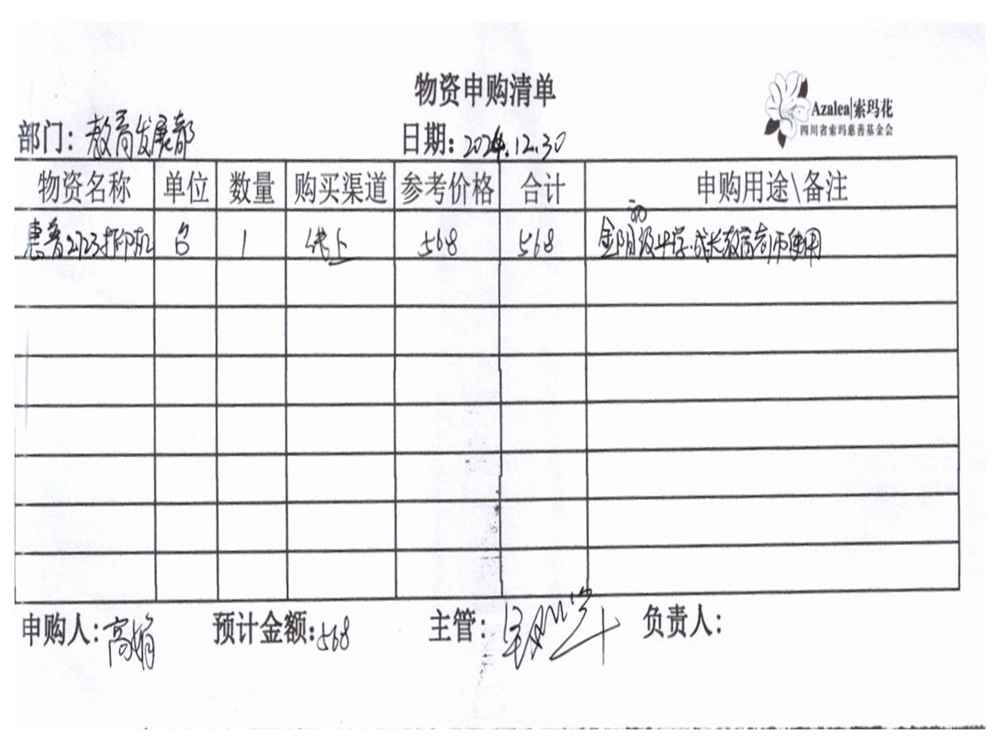 物资申购清单
Azalea|索玛花
四川省索玛慈善基金会
部门：教育发展部 日期：2024.12.30
物资名称 单位 数量 购买渠道 参考价格 合计 申购用途\备注
惠普2723打印机 台 1 线上 568 568 金阳 中学 成长教育 师使用
申购人：高娟 预计金额：568 主管： 负责人：